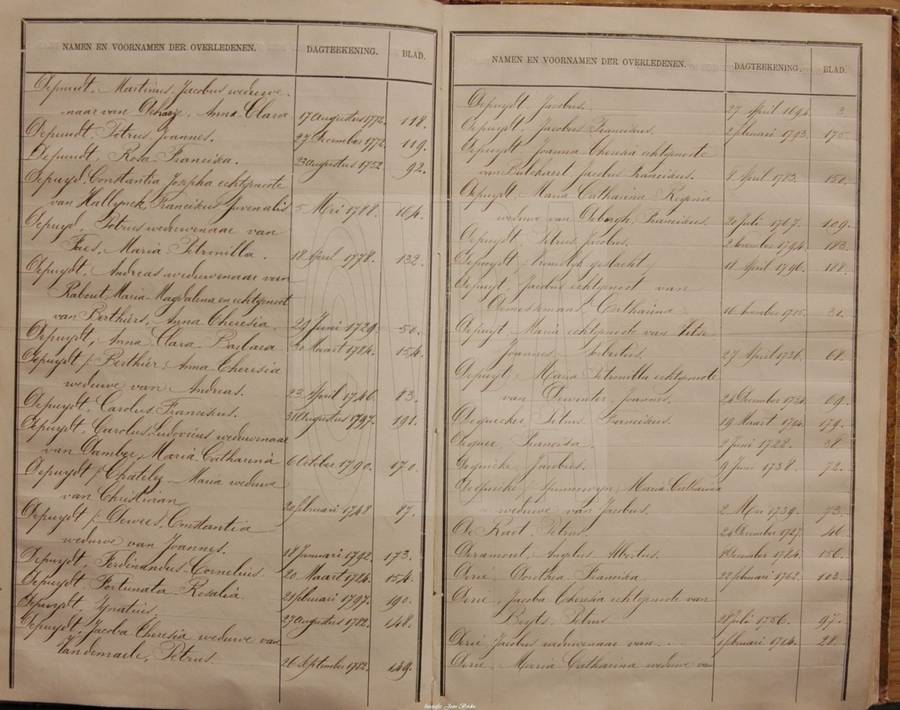 NAMEN EN VOORNAMEN DER OVERLEDENEN. DAGTEEKENING. BLAD.
Depuidt, Martinus Jacobus weduwe-
naar van Anna Clara 17 augustus 1772. 118.
Depuidt, Petrus Joannes. 1772. 119.
Depuidt, Rosa Francisca. 23 augustus 1752 92.
Depuyd Constantia Josepha echtgenoote
van Hallynck, Franciskus Juvenalis 5 Mei 1788. 164.
Depuyd, Petrus weduwenaar van
Paes, Maria Petronilla. 18 April 1778. 132.
Depuydt, Andreas weduwenaar van
Rabaut, Maria-Magdalena en echtgenoot
van Berthiers, Anna Theresia. 29 Juni 1729. 50.
Depuydt, Anna Clara Barbara 20 Maart 1784. 154.
Depuydt / Berthier, Anna Theresia
weduwe van Andreas. 23 April 1746 83.
Depuydt, Carolus Franciskus. 31 augustus 1797. 191.
Depuydt, Carolus Ludovicus weduwenaar
van Damber, Maria Catharina 6 October 1790. 170.
Depuydt / Chatelez Maria weduwe
van Christiaan 20 februari 1748 87.
Depuydt / Dewees, Constantia
weduwe van Joannes. 18 Januari 1792. 173.
Depuydt, Ferdinandus Cornelius 20 Maart 1784. 154.
Depuydt Fortunata Rosalia 21 februari 1797. 190.
Depuydt, Ignatius. 27 augustus 1782. 148.
Depuydt, Jacoba Theresia weduwe van
Vandemaele, Petrus. 26 September 1782. 149.
NAMEN EN VOORNAMEN DER OVERLEDENEN. DAGTEEKENING. BLAD.
Depuydt Jacobus. 27 April 1694. 3.
Depuydt, Jacobus Franciskus. 2 februari 1793. 175.
Depuydt Joanna Theresia echtgenoote
van Bulckaert, Jacobus Franciskus. 8 April 1783. 150.
Depuydt, Maria Catharina Regina
weduwe van Deborgh, Franciskus. 20 Juli 1767. 109.
Depuydt Petrus Jacobus. 1794. 183.
Depuydt geslacht 18 April 1796. 188.
Depuyt, Jacobus echtgenoot van
Catharina 1715. 31.
Depuyt Maria echtgenoote van
Joannes Albertus. 27 April 1736. 68.
Depuyt, Maria Petronilla echtgenoote
van Deventer, Joannes. 24 December 1736. 69.
Dequecker, Petrus Franciskus. 19 Maart 1794. 179.
Dequee Francisca. 2 Juni 1722. 38.
Dequicke, Jacobus. 9 Juni 1738. 72.
Dequicke / Maria Catharina
weduwe van Jacobus. 2 Mei 1739. 73.
De Raet, Petrus. 24 December 1727. 46.
Deramout, Angelus Albertus. December 1784. 156.
Derie, Dorothea Francisca. 22 februari 1762. 103.
Derie, Jacoba Theresia echtgenoote van
Buyts, Petrus 28 Juli 1756. 97.
Derie Jacobus weduwenaar van 1 februari 1714. 28.
Derie, Maria Catharina weduwe van